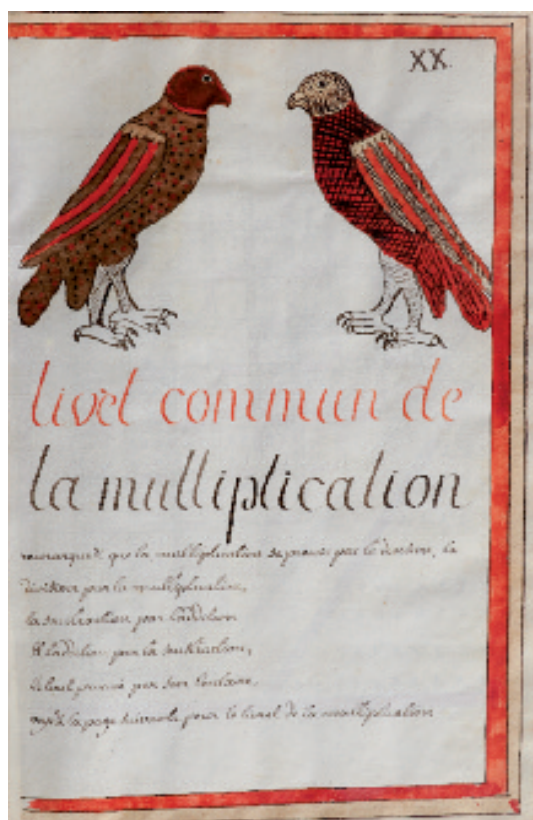 XX.
livet commun de
la multiplication
remarquez que la multiplication se prouve par la division, la
division par la multiplication,
la soustraction par l'addition
et l'adition par la soustraction,
le tout prouvé par son contraire,
la page suivante pour le livret de la multiplication